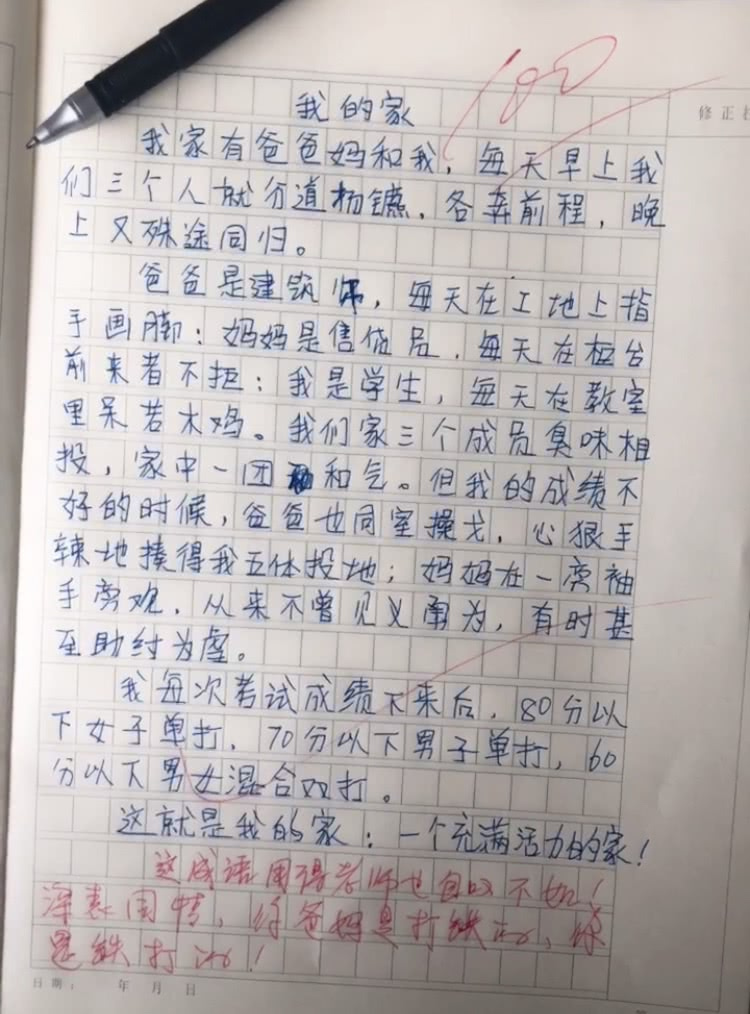 100
修正
我的家
我家有爸爸妈和我，每天早上我
们三个人就分道扬镳，各奔前程，晚
上又殊途同归。
爸爸是建筑师，每天在工地上指
手画脚；妈妈是售货员，每天在柜台
前来者不拒；我是学生，每天在教室
里呆若木鸡。我们家三个成员臭味相
投，家中一团和气。但我的成绩不
好的时候，爸爸也同室操戈，心狠手
辣地揍得我五体投地；妈妈在一旁袖
手旁观，从来不曾见义勇为，有时甚
至助纣为虐。
我每次考试成绩下来后，80分以
下女子单打，70分以下男子单打，60
分以下男女混合双打。
这就是我的家：一个充满活力的家！
这成语用得老师也自叹不如！
深表同情，你爸妈是打铁的，你
是铁打的！
日期： 年 月 日